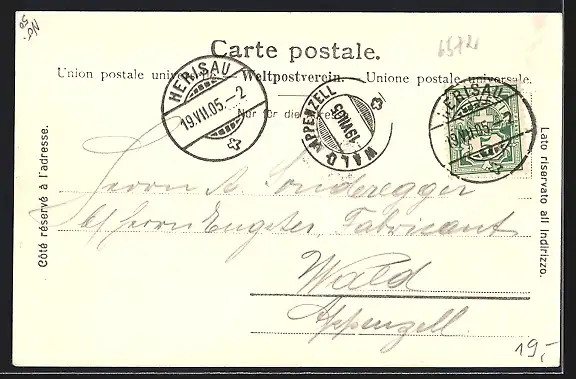 No
50
Carte postale.
6572
Union postale universelle. — Weltpostverein. — Unione postale universale.
Nur für die Adresse
HERISAU
19.VII.05.-2
WALD (APPENZELL
19 VII 05
HERISAU
19.VII.05.-2
Côté réservé à l'adresse.
Lato riservato all' indirizzo.
Herrn A. Sonderegger
b/ Herrn Engster, Fabricant
Wald
Appenzell.
19,-